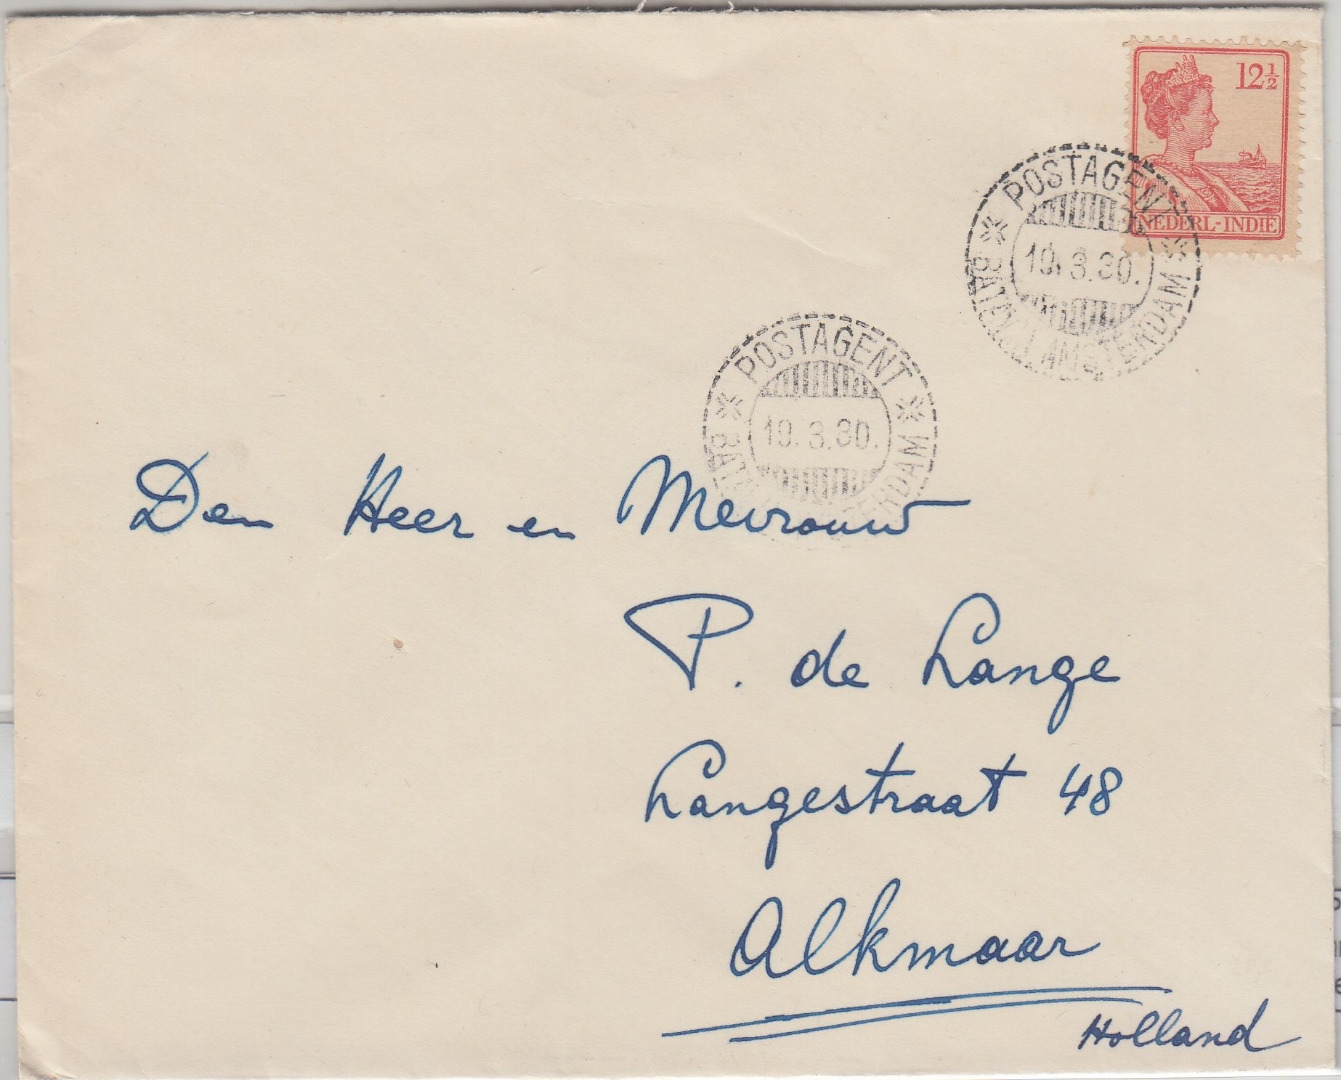 12½
NEDERL-INDIE
POSTAGENT
19.3.30.
BATAV. AMSTERDAM
POSTAGENT
19.3.30.
Den Heer en Mevrouw
P. de Lange
Langestraat 48
Alkmaar
Holland